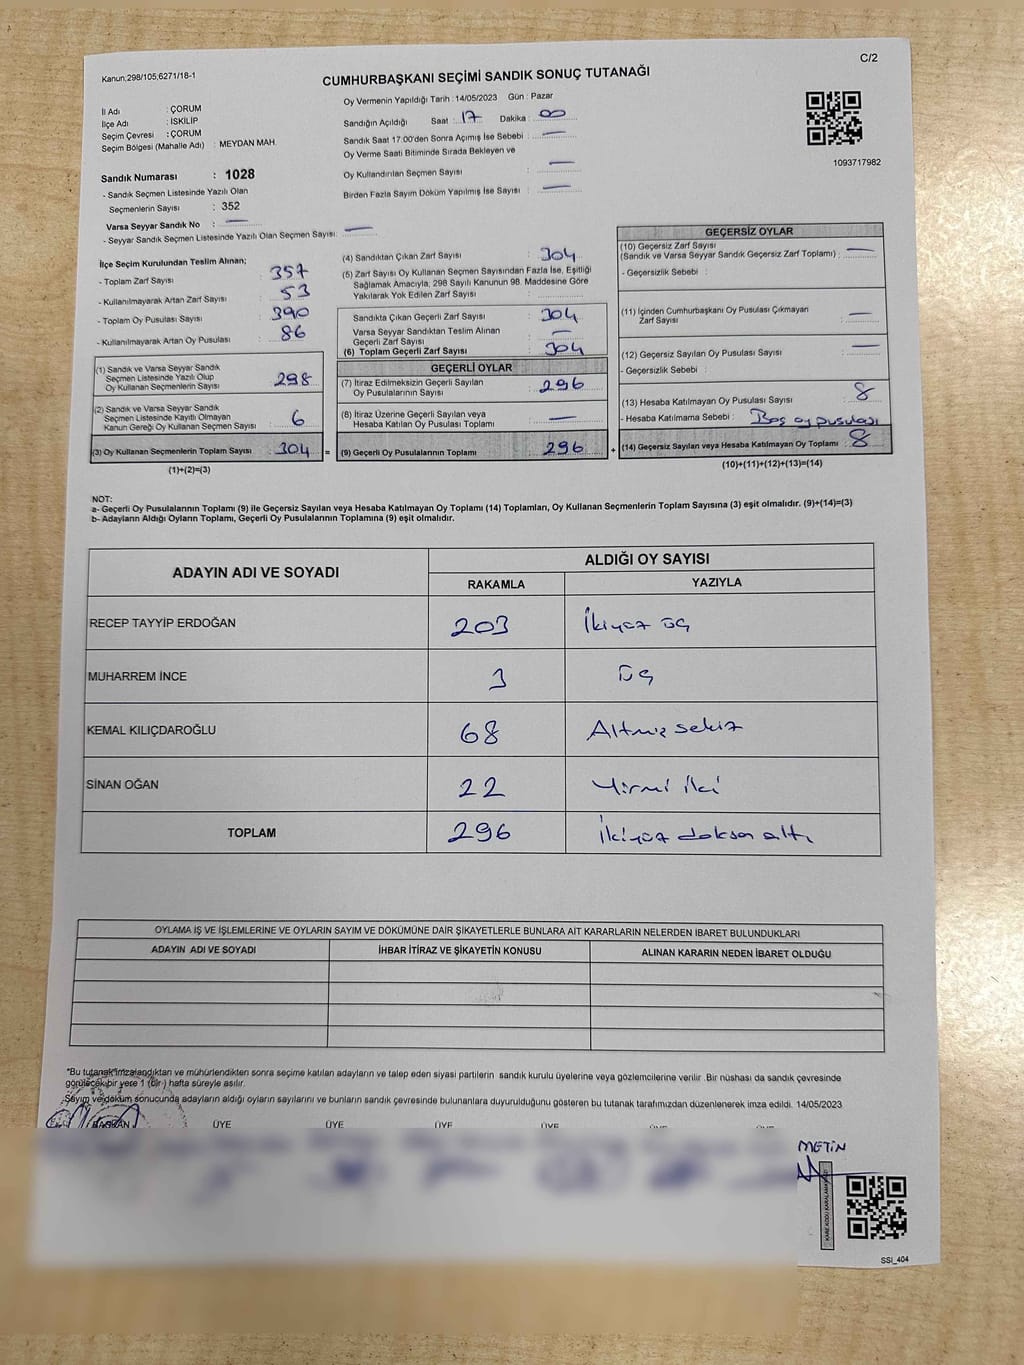 Kanun:298/105;6271/18-1
C/2
CUMHURBAŞKANI SEÇİMİ SANDIK SONUÇ TUTANAĞI
İl Adı : ÇORUM
İlçe Adı : İSKİLİP
Seçim Çevresi : ÇORUM
Seçim Bölgesi (Mahalle Adı) : MEYDAN MAH.
Oy Vermenin Yapıldığı Tarih : 14/05/2023 Gün : Pazar
Sandığın Açıldığı Saat : 17 Dakika : 00
Sandık Saat 17:00'den Sonra Açımış İse Sebebi : —
Oy Verme Saati Bitiminde Sırada Bekleyen ve
Oy Kullandırılan Seçmen Sayısı : —
Birden Fazla Sayım Döküm Yapılmış İse Sayısı : —
1093717982
Sandık Numarası : 1028
- Sandık Seçmen Listesinde Yazılı Olan
Seçmenlerin Sayısı : 352
Varsa Seyyar Sandık No : —
- Seyyar Sandık Seçmen Listesinde Yazılı Olan Seçmen Sayısı: —
İlçe Seçim Kurulundan Teslim Alınan;
- Toplam Zarf Sayısı : 357
- Kullanılmayarak Artan Zarf Sayısı : 53
- Toplam Oy Pusulası Sayısı : 390
- Kullanılmayarak Artan Oy Pusulası : 86
(1) Sandık ve Varsa Seyyar Sandık
Seçmen Listesinde Yazılı Olup
Oy Kullanan Seçmenlerin Sayısı : 298
(2) Sandık ve Varsa Seyyar Sandık
Seçmen Listesinde Kayıtlı Olmayan
Kanun Gereği Oy Kullanan Seçmen Sayısı : 6
(3) Oy Kullanan Seçmenlerin Toplam Sayısı : 304 =
(1)+(2)=(3)
(4) Sandıktan Çıkan Zarf Sayısı : 304
(5) Zarf Sayısı Oy Kullanan Seçmen Sayısından Fazla İse, Eşitliği
Sağlamak Amacıyla; 298 Sayılı Kanunun 98. Maddesine Göre
Yakılarak Yok Edilen Zarf Sayısı :
Sandıkta Çıkan Geçerli Zarf Sayısı : 304
Varsa Seyyar Sandıktan Teslim Alınan
Geçerli Zarf Sayısı : —
(6) Toplam Geçerli Zarf Sayısı : 304
GEÇERLİ OYLAR
(7) İtiraz Edilmeksizin Geçerli Sayılan
Oy Pusulalarının Sayısı : 296
(8) İtiraz Üzerine Geçerli Sayılan veya
Hesaba Katılan Oy Pusulası Toplamı : —
(9) Geçerli Oy Pusulalarının Toplamı : 296 +
GEÇERSİZ OYLAR
(10) Geçersiz Zarf Sayısı
(Sandık ve Varsa Seyyar Sandık Geçersiz Zarf Toplamı) : —
- Geçersizlik Sebebi :
(11) İçinden Cumhurbaşkanı Oy Pusulası Çıkmayan
Zarf Sayısı : —
(12) Geçersiz Sayılan Oy Pusulası Sayısı : —
- Geçersizlik Sebebi :
(13) Hesaba Katılmayan Oy Pusulası Sayısı : 8
- Hesaba Katılmama Sebebi : Boş oy pusulası
(14) Geçersiz Sayılan veya Hesaba Katılmayan Oy Toplamı : 8
(10)+(11)+(12)+(13)=(14)
NOT:
a- Geçerli Oy Pusulalarının Toplamı (9) ile Geçersiz Sayılan veya Hesaba Katılmayan Oy Toplamı (14) Toplamları, Oy Kullanan Seçmenlerin Toplam Sayısına (3) eşit olmalıdır. (9)+(14)=(3)
b- Adayların Aldığı Oyların Toplamı, Geçerli Oy Pusulalarının Toplamına (9) eşit olmalıdır.
ADAYIN ADI VE SOYADI ALDIĞI OY SAYISI
RAKAMLA YAZIYLA
RECEP TAYYİP ERDOĞAN 203 İkiyüz üç
MUHARREM İNCE 3 üç
KEMAL KILIÇDAROĞLU 68 Altmış sekiz
SİNAN OĞAN 22 Yirmi iki
TOPLAM 296 İkiyüz doksan altı
OYLAMA İŞ VE İŞLEMLERİNE VE OYLARIN SAYIM VE DÖKÜMÜNE DAİR ŞİKAYETLERLE BUNLARA AİT KARARLARIN NELERDEN İBARET BULUNDUKLARI
ADAYIN ADI VE SOYADI İHBAR İTİRAZ VE ŞİKAYETİN KONUSU ALINAN KARARIN NEDEN İBARET OLDUĞU
"Bu tutanak" imzalandıktan ve mühürlendikten sonra seçime katılan adayların ve talep eden siyasi partilerin sandık kurulu üyelerine veya gözlemcilerine verilir. Bir nüshası da sandık çevresinde
görülecek bir yere 1 (bir) hafta süreyle asılır.
Sayım ve döküm sonucunda adayların aldığı oyların sayılarını ve bunların sandık çevresinde bulunanlara duyurulduğunu gösteren bu tutanak tarafımızdan düzenlenerek imza edildi. 14/05/2023
BAŞKAN ÜYE ÜYE ÜYE ÜYE ÜYE ÜYE
METİN
SSI_404